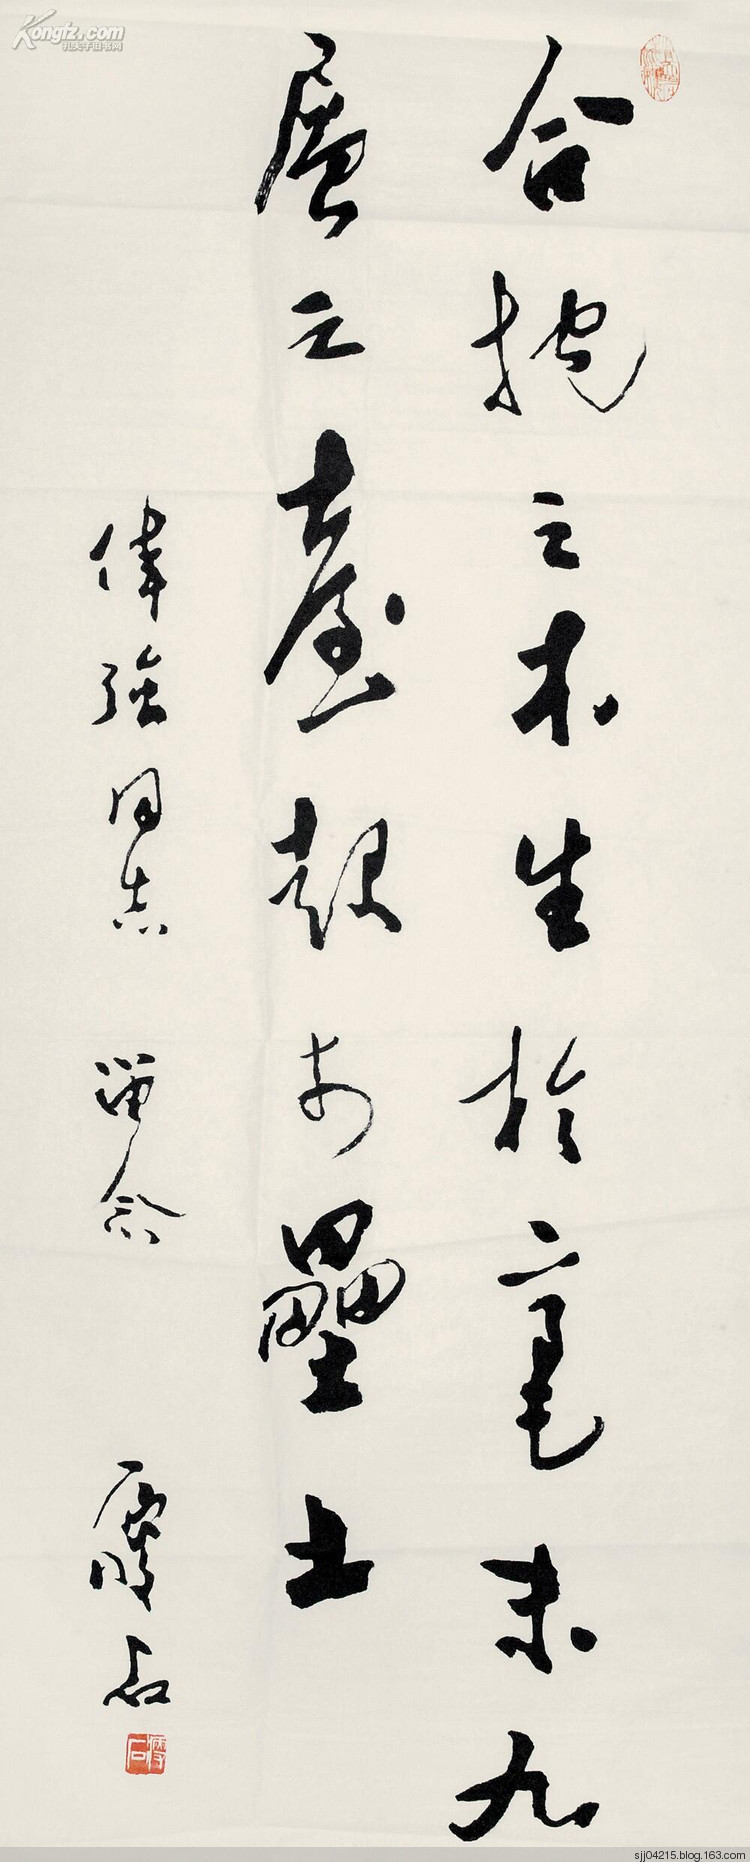 合抱之木生於毫末九
層之臺起於壘土
偉強同志 留念
Kongfz.com
孔夫子旧书网
sjj04215.blog.163.com